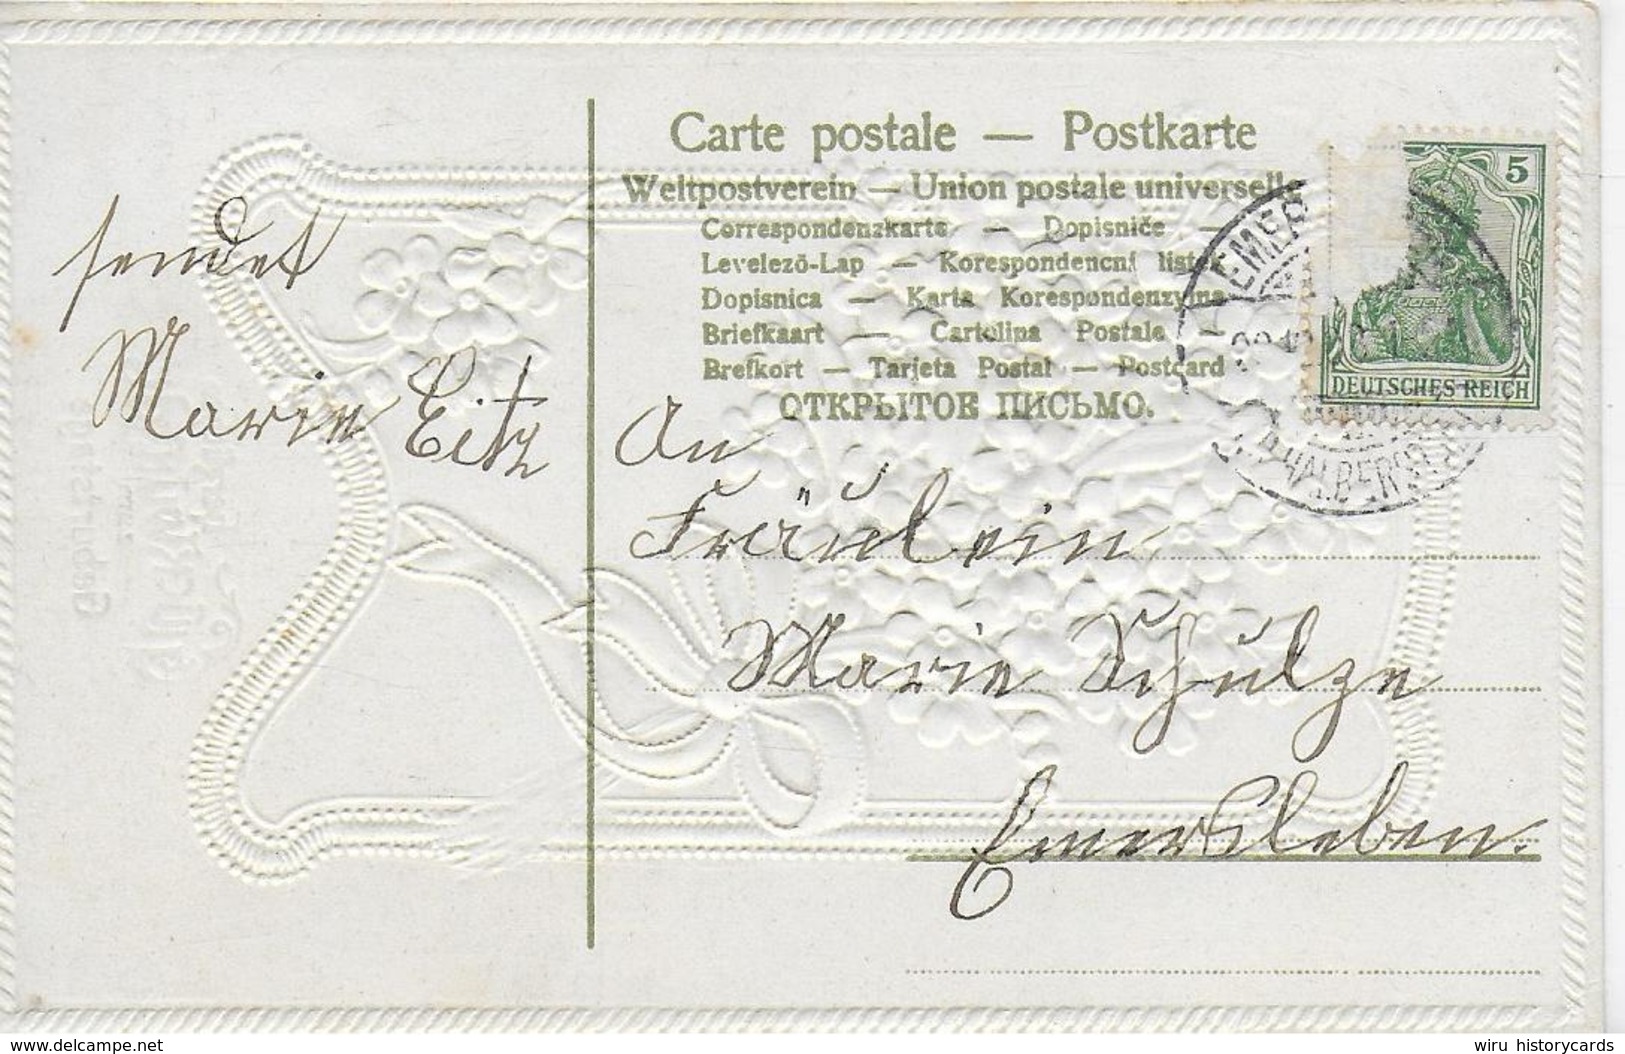 Carte postale — Postkarte
Weltpostverein — Union postale universelle
Correspondenzkarte — Dopisniče —
Levelező-Lap — Korespondencní list
Dopisnica — Karta Korespondenzyjna
Briefkaart — Cartulina Postale
Brefkort — Tarjeta Postal — Postcard
ОТКРЫТОЕ ПИСЬМО.
5
DEUTSCHES REICH
EMER
HALBERST
sendet
Marie Eitz
An
Fräulein
Marie Schulze
Emersleben.
Geburtstag
www.delcampe.net
wiru historycards